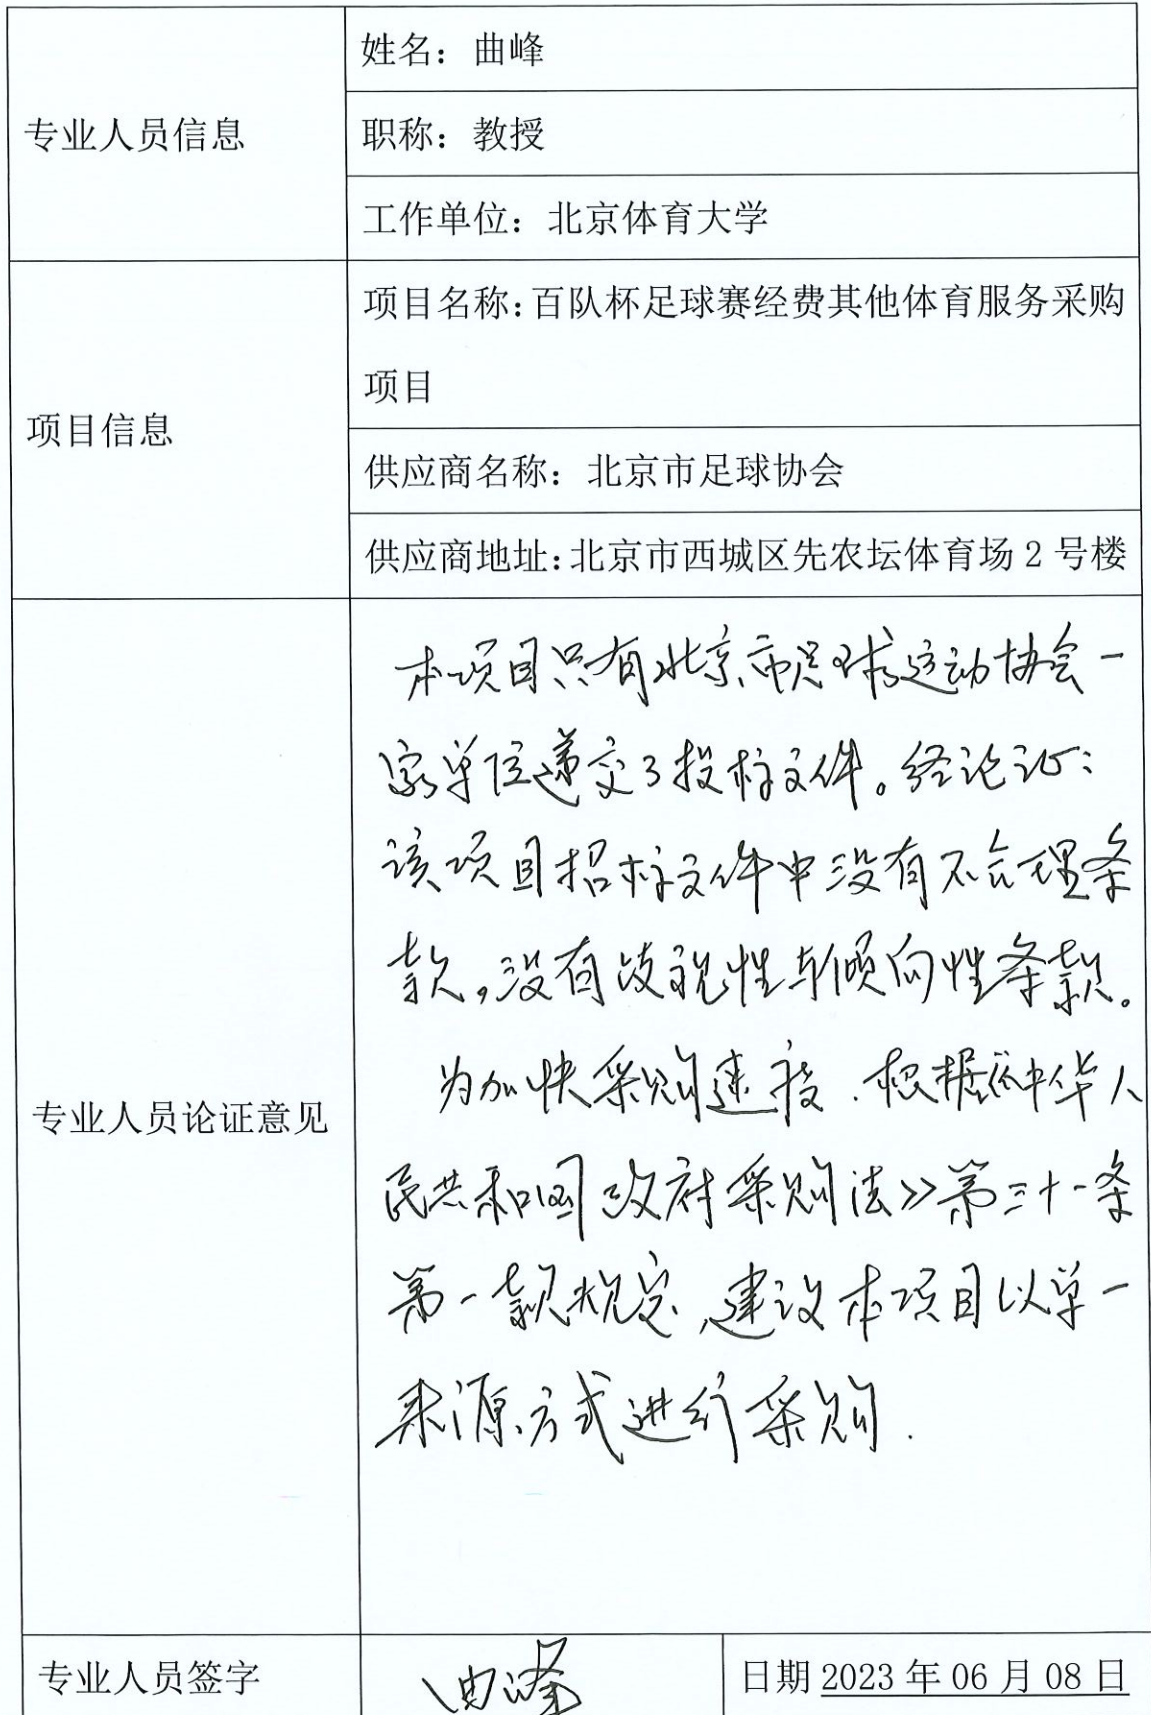 专业人员信息
姓名：曲峰
职称：教授
工作单位：北京体育大学
项目信息
项目名称：百队杯足球赛经费其他体育服务采购
项目
供应商名称：北京市足球协会
供应商地址：北京市西城区先农坛体育场 2 号楼
专业人员论证意见
本项目只有北京市足球运动协会一
家单位递交了投标文件。经论证：
该项目招标文件中没有不合理条
款，没有歧视性与倾向性条款。
为加快采购速度，根据《中华人
民共和国政府采购法》第三十一条
第一款规定，建议本项目以单一
来源方式进行采购.
专业人员签字
曲峰
日期 2023 年 06 月 08 日